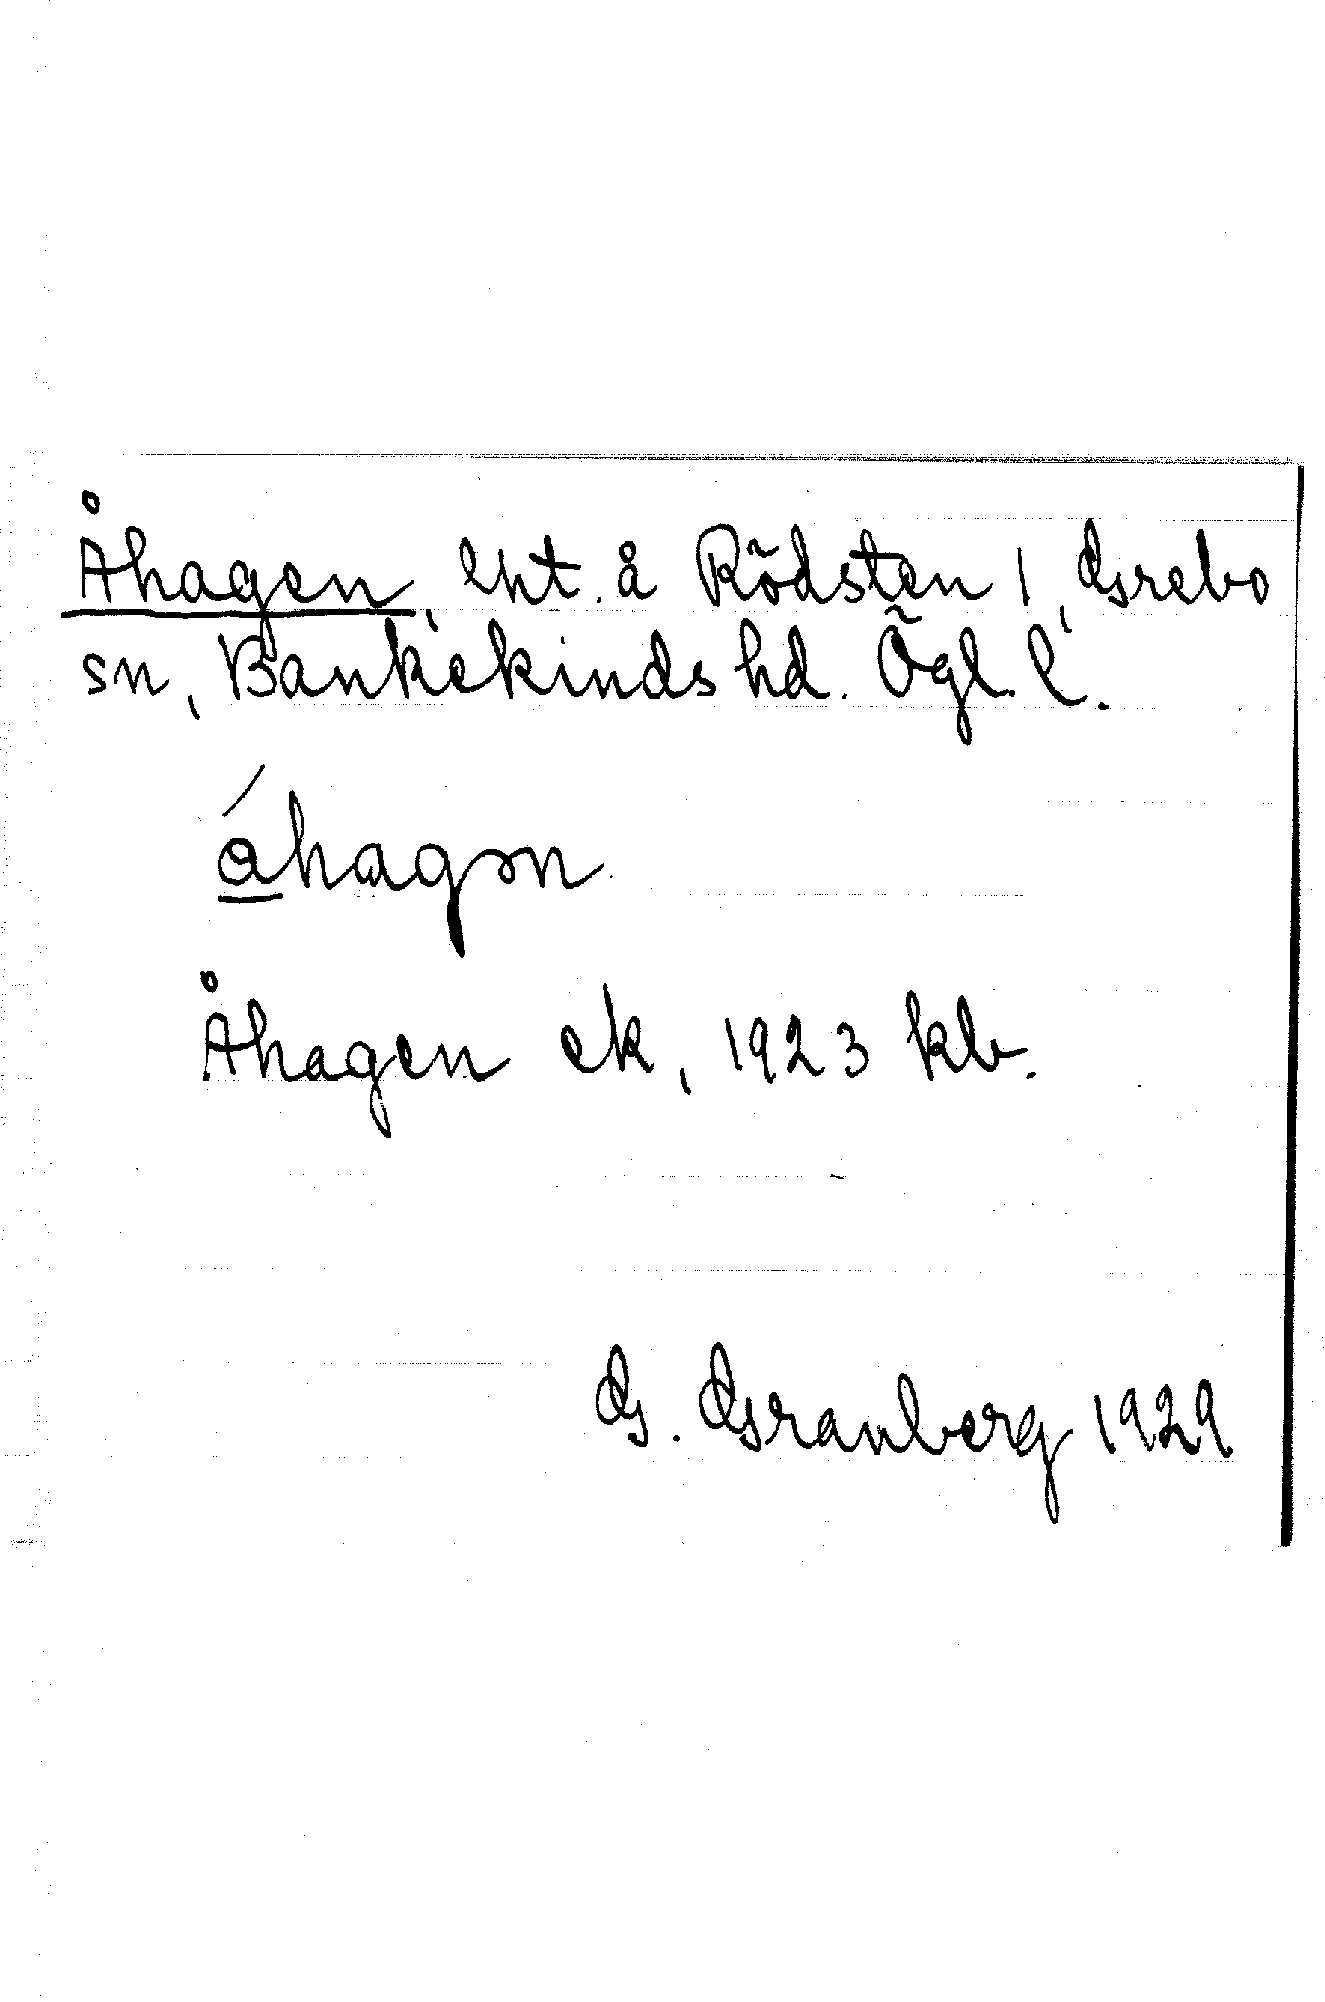 Åhagen, lht. å Rödsten 1, Grebo
sn, Bankekinds hd. Ögl. l.
åhagən
Åhagen ek, 1923 kb.
G. Granberg 1929